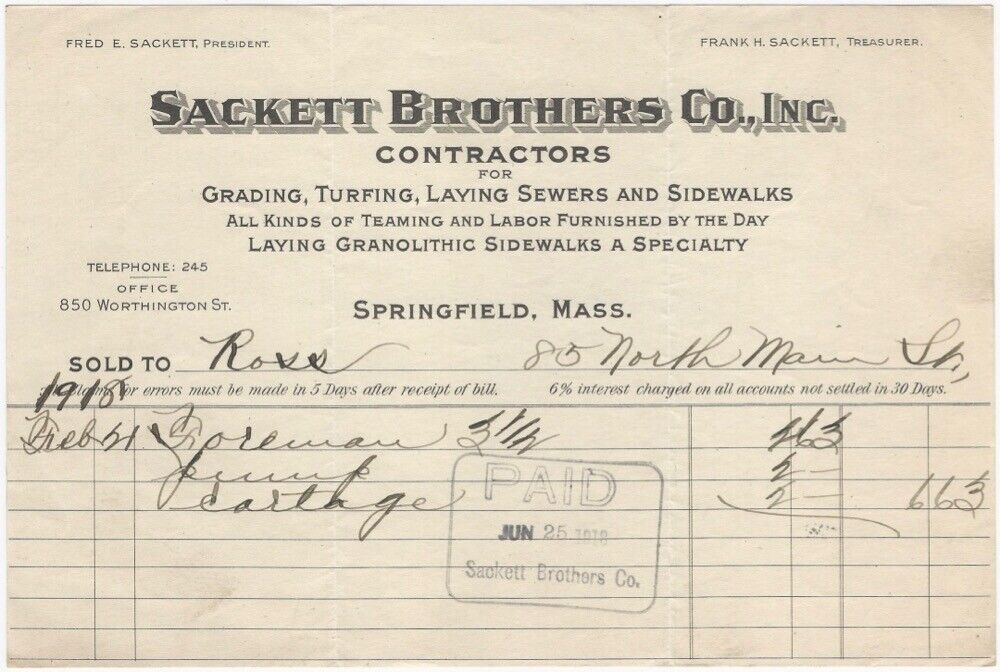 FRED E. SACKETT, PRESIDENT.
FRANK H. SACKETT, TREASURER.
SACKETT BROTHERS CO., INC.
CONTRACTORS
FOR
GRADING, TURFING, LAYING SEWERS AND SIDEWALKS
ALL KINDS OF TEAMING AND LABOR FURNISHED BY THE DAY
LAYING GRANOLITHIC SIDEWALKS A SPECIALTY
TELEPHONE: 245
OFFICE
850 WORTHINGTON ST.
SPRINGFIELD, MASS.
SOLD TO Ross 85 North Main St.,
1918 for errors must be made in 5 Days after receipt of bill. 6% interest charged on all accounts not settled in 30 Days.
Feb 21 Foreman 3 1/2
pump 2 -
cartage 2 - 663
PAID
JUN 25 1918
Sackett Brothers Co.